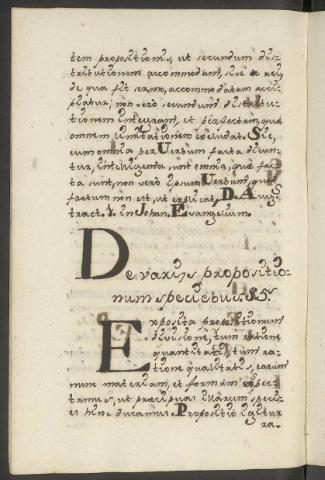 tem propositionis, ut secundum dis-
tributionem accommodam, sive a re,
de qua fit sermo, accommodatam acci-
piatur; non vero secundum distribu-
tionem integram, et perfectam, quæ
omnem limitationem excludat. Sic,
cum omnia per Uerbum facta dicun-
tur, intelligenda sunt omnia, quæ fac-
ta sunt, non vero ipsum Uerbum, quod
factum non est, ut explicat D. Aug.
tract. 1. in Johan. Evangelium.
De varijs propositio-
num speciebus. §. 5.
Exposita propositionum
divisione, tum ratione
quantitatis, tum ra-
tione qualitatis, earum
num materiam, et formam expec-
tamus, ut præcipuas illarum speci-
es hinc ducamus. Propositio igitur
ra-